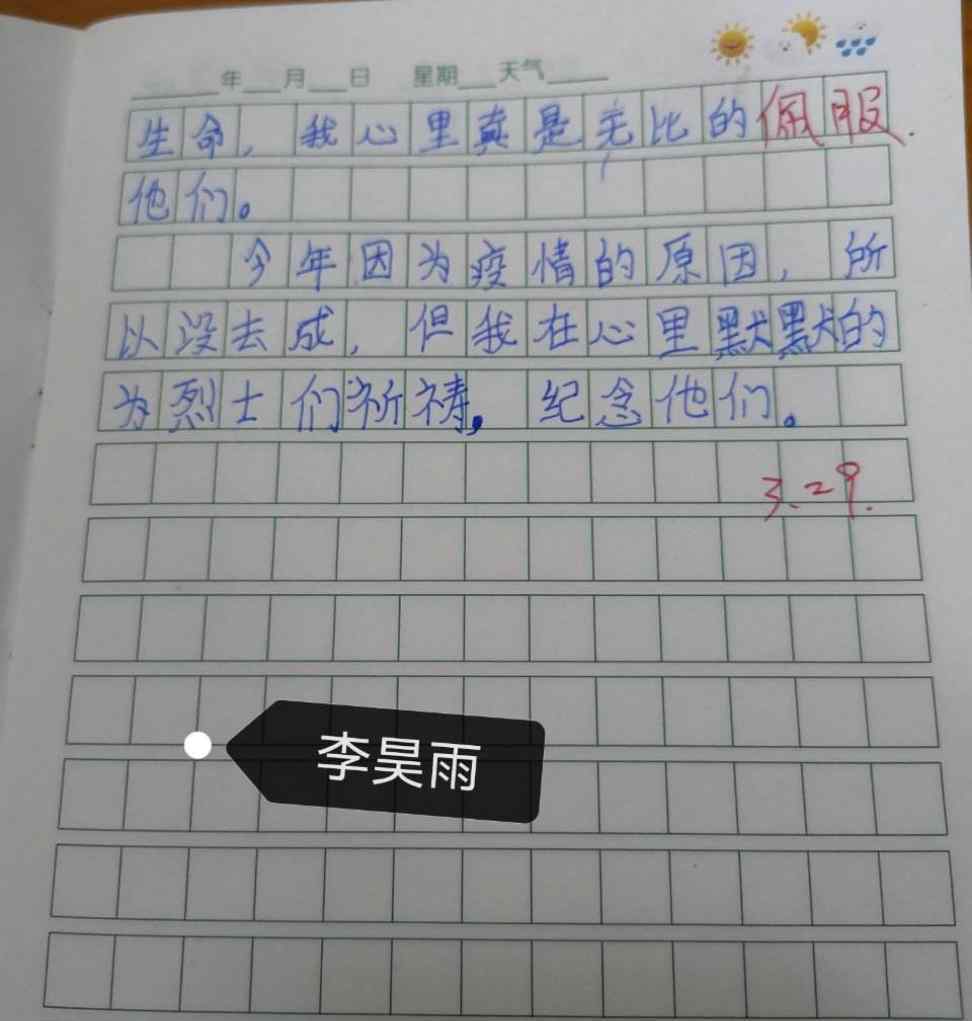 年 月 日 星期 天气
生命,我心里真是无比的佩服.
他们。
今年因为疫情的原因,所
以没去成,但我在心里默默的
为烈士们祈祷,纪念他们。
3.29.
李昊雨